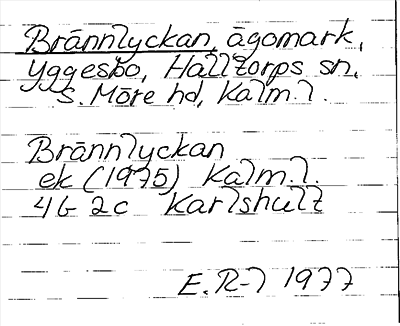 Brännlyckan, ägomark,
Yggesbo, Halltorps sn,
S. Möre hd, Kalm. l.
Brännlyckan
ek (1975) Kalm. l.
4G 2c Karlshult
E. R-l 1977